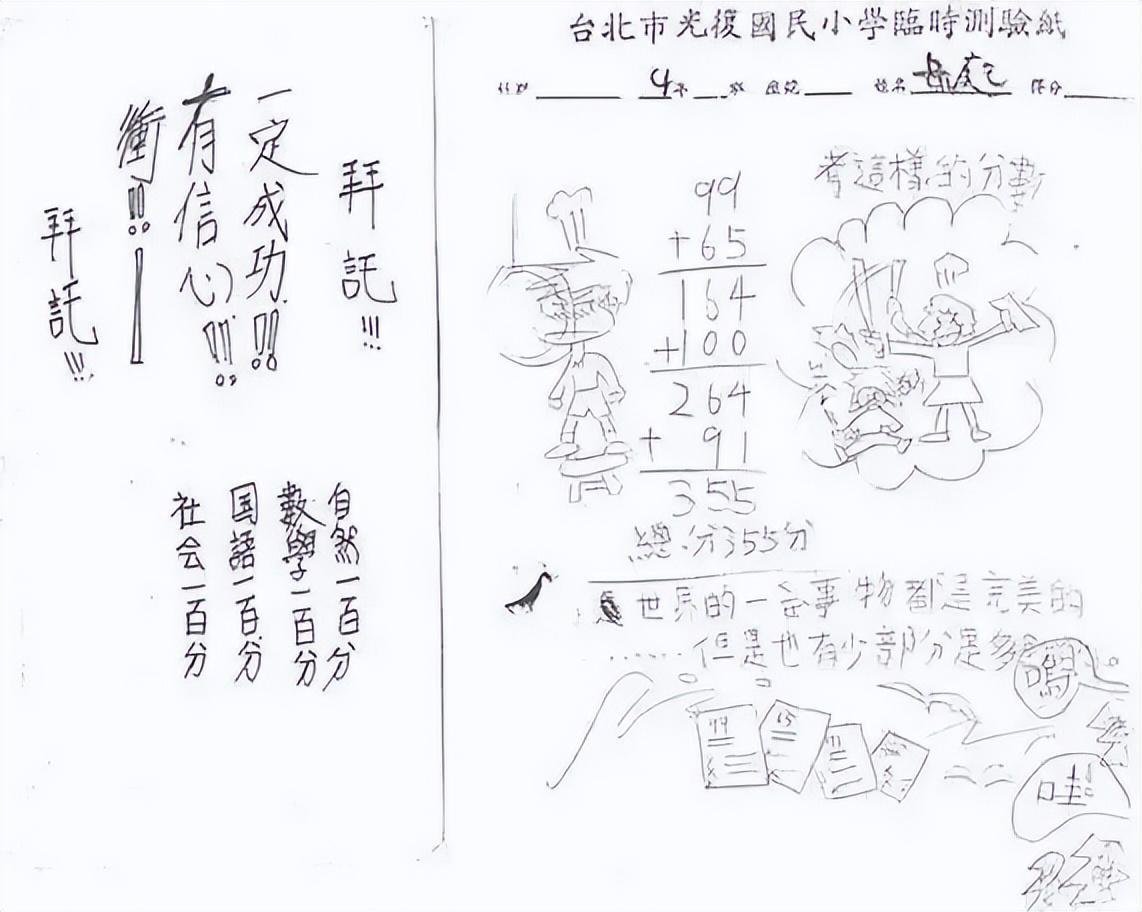 拜託!!!
一定成功!!
有信心!!!
衝!!—
拜託!!!
自然一百分
數學一百分
国語一百分
社会一百分
台北市光復國民小學臨時測驗紙
4年 班 座號 姓名 得分
考這樣的分數
99
+65
164
+100
264
+ 91
355
總分355分
世界的一些事物都是完美的
……但是也有少部分是多
嗚
哇
79
15
11